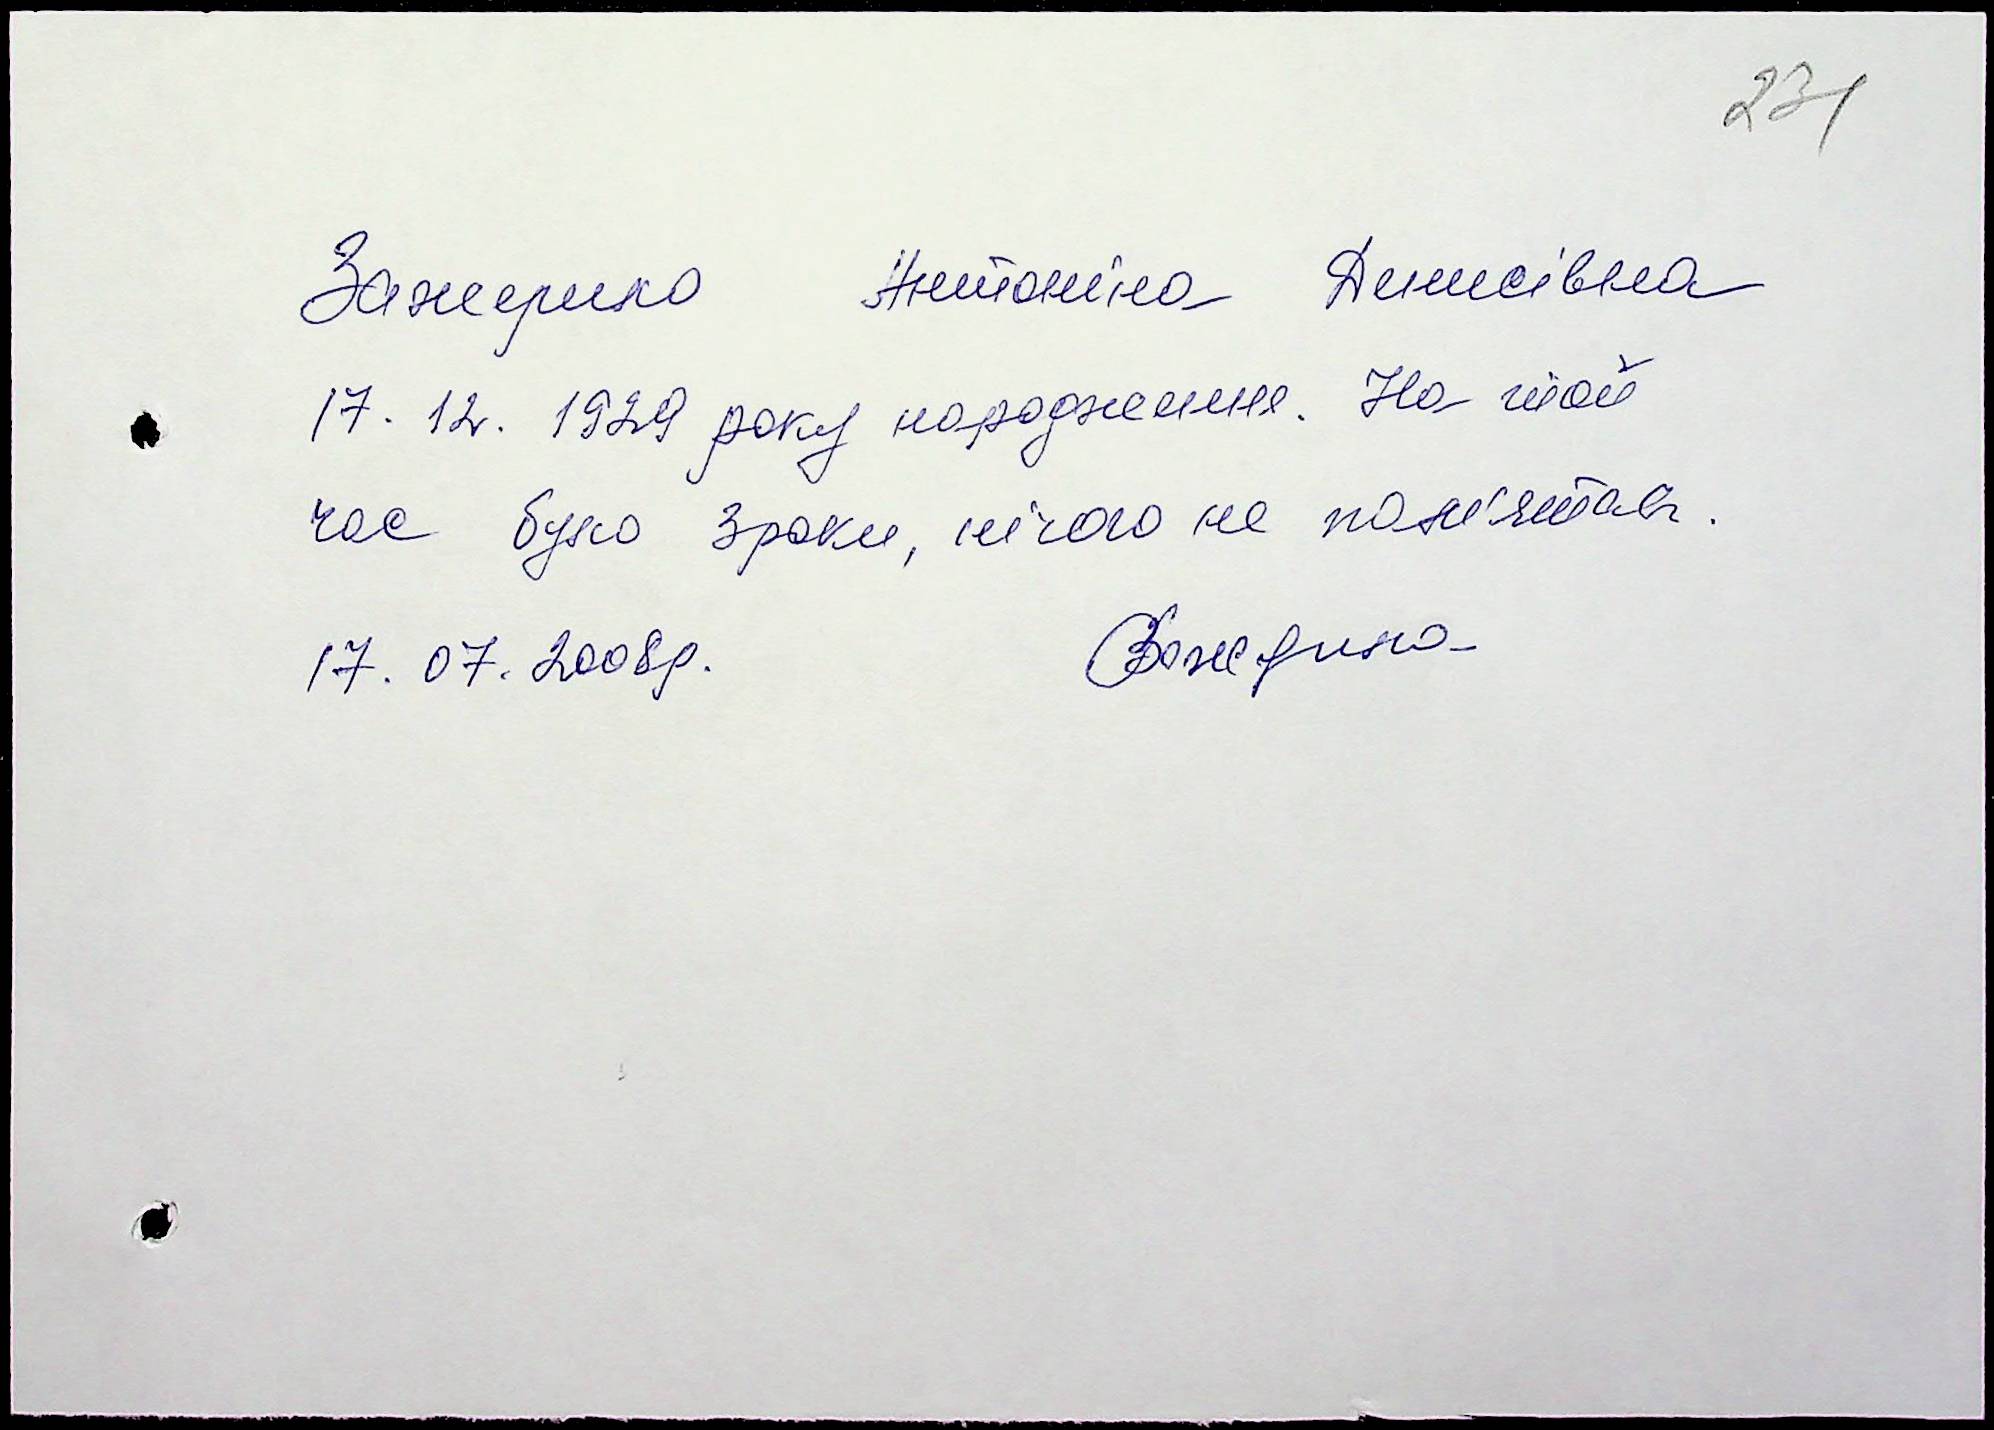 231
Зажерило Антоніна Денисівна
17. 12. 1929 року народження. На той
час було 3роки, нічого не пам'ятає.
17. 07. 2008р. Зажерило